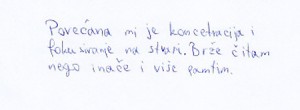 Povećana mi je koncetracija i
fokusiranje na stvari. Brže čitam
nego inače i više pamtim.